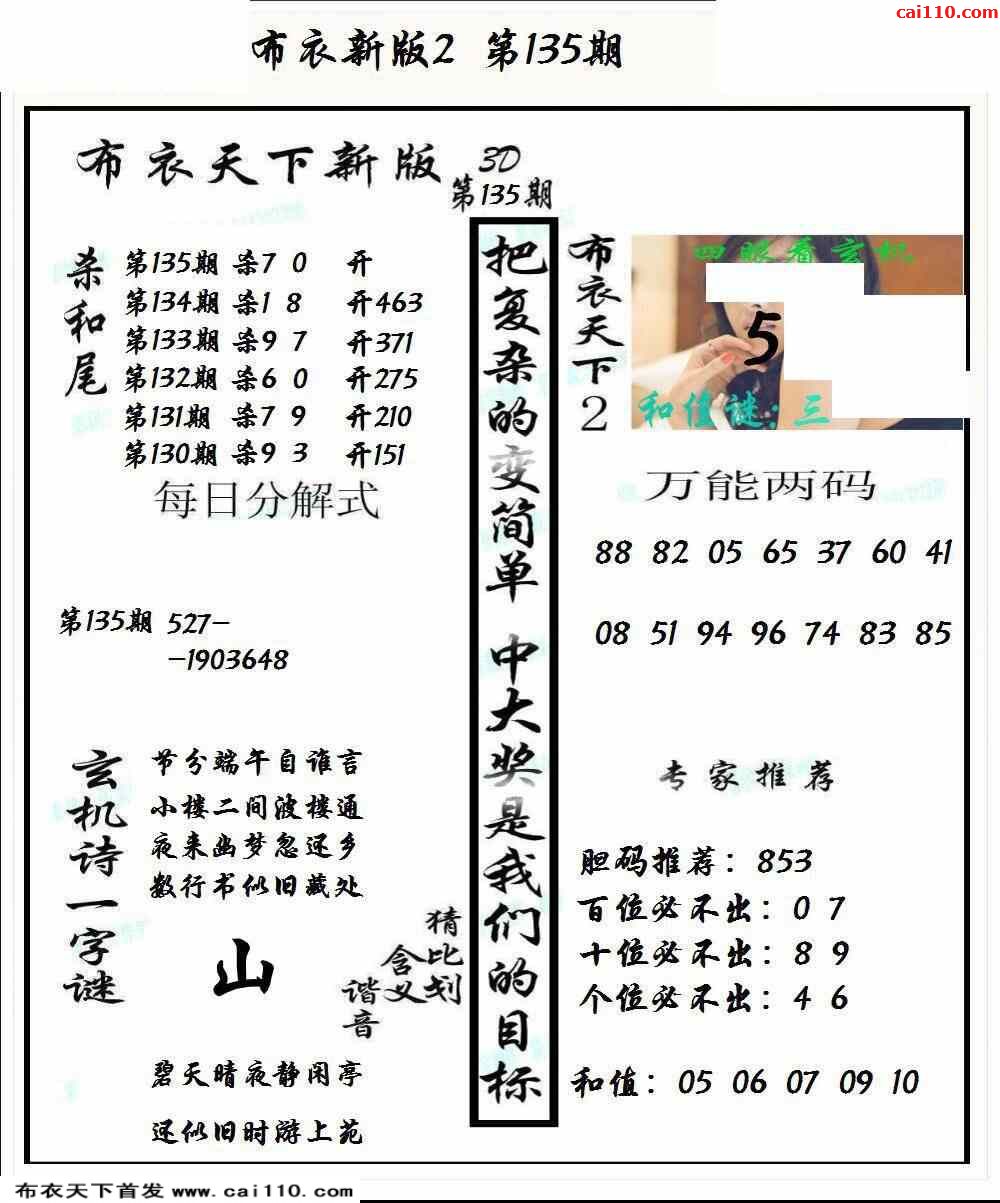 cai110.com
布衣新版2 第135期
布衣天下新版 3D
第135期
杀和尾
第135期 杀7 0 开
第134期 杀1 8 开463
第133期 杀9 7 开371
第132期 杀6 0 开275
第131期 杀7 9 开210
第130期 杀9 3 开151
每日分解式
第135期 527-
-1903648
玄机诗一字谜
节分端午自谁言
小楼二间波楼通
夜来幽梦忽还乡
数行书似旧藏处
山
猜比划
含义
谐音
碧天晴夜静闲亭
还似旧时游上苑
把复杂的变简单 中大奖是我们的目标
布衣天下2
四眼看玄机
5
和值谜:三
万能两码
88 82 05 65 37 60 41
08 51 94 96 74 83 85
专家推荐
胆码推荐：853
百位必不出：0 7
十位必不出：8 9
个位必不出：4 6
和值：05 06 07 09 10
布衣天下首发 www.cai110.com